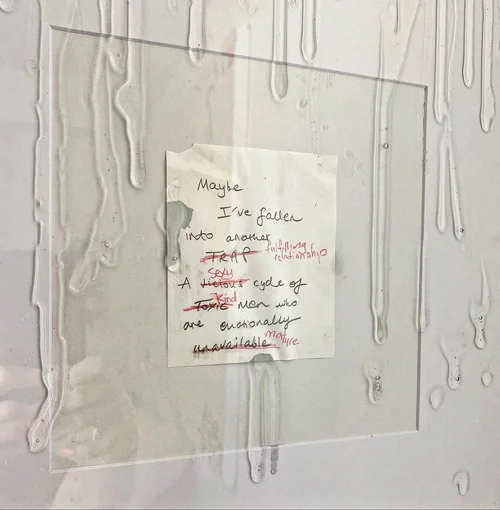 Maybe
I've fallen
into another
TRAP fulfilling relationship
sexy
A vicious cycle of
kind
Toxic men who
are emotionally
unavailable mature